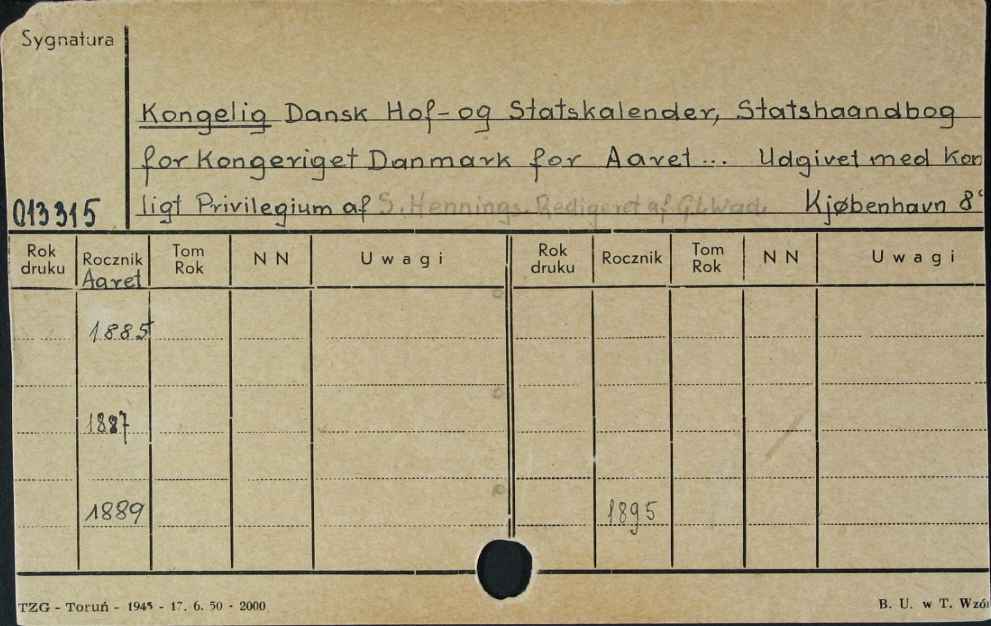 Sygnatura
Kongelig Dansk Hof- og Statskalender, Statshaandbog
for Kongeriget Danmark for Aaret... Udgivet med Kon
ligt Privilegium af S. Hennings. Redigeret af G.L. Wad. Kjøbenhavn 8°
013315
Rok druku Rocznik Tom Rok NN Uwagi Rok druku Rocznik Tom Rok NN Uwagi
Aaret
1885
1887
1889 1895
TZG - Toruń - 1945 - 17. 6. 50 - 2000 B. U. w T. Wzó